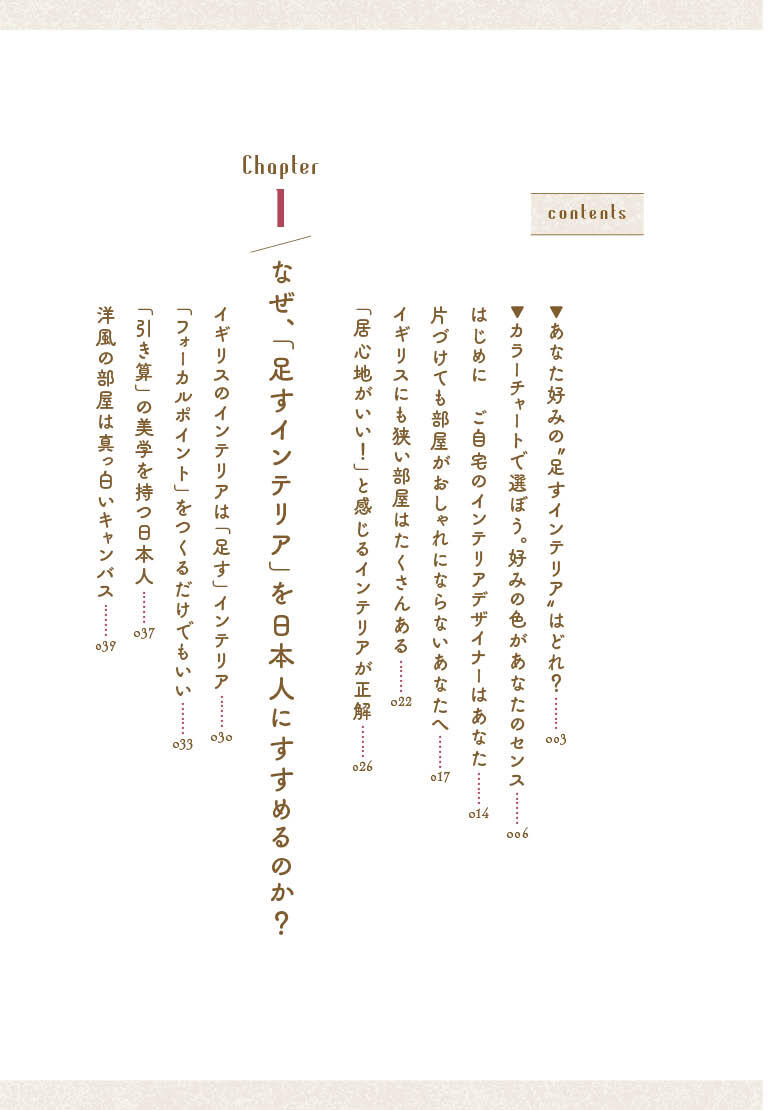 contents
▼あなた好みの〝足すインテリア〟はどれ？……003
▼カラーチャートで選ぼう。好みの色があなたのセンス……006
はじめに　ご自宅のインテリアデザイナーはあなた……014
片づけても部屋がおしゃれにならないあなたへ……017
イギリスにも狭い部屋はたくさんある……022
「居心地がいい！」と感じるインテリアが正解……026
Chapter
1
なぜ、「足すインテリア」を日本人にすすめるのか？
イギリスのインテリアは「足す」インテリア……030
「フォーカルポイント」をつくるだけでもいい……033
「引き算」の美学を持つ日本人……037
洋風の部屋は真っ白いキャンバス……039